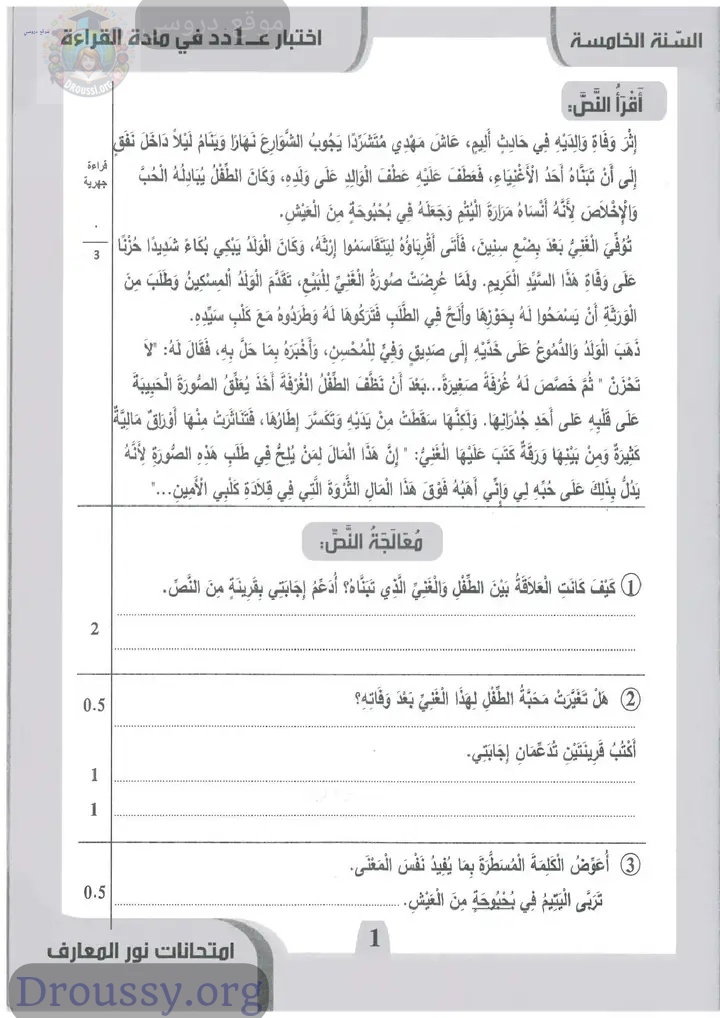 موقع دروسي
السّنة الخامسة
اختبار عـ1ـدد في مادة القراءة
موقع دروسي
DROUSSI.org
أَقْرَأُ النَّصَّ:
إِثْرَ وَفَاةِ وَالِدَيْهِ فِي حَادِثٍ أَلِيمٍ، عَاشَ مَهْدِي مُتَشَرِّدًا يَجُوبُ الشَّوَارِعَ نَهَارًا وَيَنَامُ لَيْلاً دَاخَلَ نَفَقٍ
إِلَى أَنْ تَبَنَّاهُ أَحَدُ الْأَغْنِيَاءِ، فَعَطَفَ عَلَيْهِ عَطْفَ الْوَالِدِ عَلَى وَلَدِهِ، وَكَانَ الطِّفْلُ يُبَادِلُهُ الْحُبَّ
وَالْإِخْلَاصَ لِأَنَّهُ أَنْسَاهُ مَرَارَةَ الْيُتْمِ وَجَعَلَهُ فِي بُحْبُوحَةٍ مِنَ الْعَيْشِ.
قراءة
جهرية
.
3
تُوُفِّيَ الْغَنِيُّ بَعْدَ بِضْعِ سِنِينَ، فَأَتَى أَقْرِبَاؤُهُ لِيَتَقَاسَمُوا إِرْثَهُ، وَكَانَ الْوَلَدُ يَبْكِي بُكَاءً شَدِيدًا حُزْنًا
عَلَى وَفَاةِ هَذَا السَّيِّدِ الْكَرِيمِ. وَلَمَّا عُرِضَتْ صُورَةُ الْغَنِيِّ لِلْبَيْعِ، تَقَدَّمَ الْوَلَدُ الْمِسْكِينُ وَطَلَبَ مِنَ
الْوَرَثَةِ أَنْ يَسْمَحُوا لَهُ بِحَوْزِهَا وَأَلَحَّ فِي الطَّلَبِ فَتَرَكُوهَا لَهُ وَطَرَدُوهُ مَعَ كَلْبِ سَيِّدِهِ.
ذَهَبَ الْوَلَدُ وَالدُّمُوعُ عَلَى خَدَّيْهِ إِلَى صَدِيقٍ وَفِيٍّ لِلْمُحْسِنِ، وَأَخْبَرَهُ بِمَا حَلَّ بِهِ، فَقَالَ لَهُ: "لاَ
تَحْزَنْ " ثُمَّ خَصَّصَ لَهُ غُرْفَةً صَغِيرَةً...بَعْدَ أَنْ نَظَّفَ الطِّفْلُ الْغُرْفَةَ أَخَذَ يُعَلِّقُ الصُّورَةَ الْحَبِيبَةَ
عَلَى قَلْبِهِ عَلَى أَحَدِ جُدْرَانِهَا. وَلَكِنَّهَا سَقَطَتْ مِنْ يَدَيْهِ وَتَكَسَّرَ إِطَارُهَا، فَتَنَاثَرَتْ مِنْهَا أَوْرَاقٌ مَالِيَّةٌ
كَثِيرَةٌ وَمِنْ بَيْنِهَا وَرَقَةٌ كَتَبَ عَلَيْهَا الْغَنِيُّ: " إِنَّ هَذَا الْمَالَ لِمَنْ يُلِحُّ فِي طَلَبِ هَذِهِ الصُّورَةِ لِأَنَّهُ
يَدُلُّ بِذَلِكَ عَلَى حُبِّهِ لِي وَإِنِّي أَهَبُهُ فَوْقَ هَذَا الْمَالِ الثَّرْوَةَ الَّتِي فِي قِلَادَةِ كَلْبِي الْأَمِينِ..."
مُعَالَجَةُ النَّصِّ:
① كَيْفَ كَانَتِ الْعَلاَقَةُ بَيْنَ الطِّفْلِ وَالْغَنِيِّ الَّذِي تَبَنَّاهُ؟ أُدَعِّمُ إِجَابَتِي بِقَرِينَةٍ مِنَ النَّصِّ.
2
② هَلْ تَغَيَّرَتْ مَحَبَّةُ الطِّفْلِ لِهَذَا الْغَنِيِّ بَعْدَ وَفَاتِهِ؟
0.5
أَكْتُبُ قَرِينَتَيْنِ تُدَعِّمَانِ إِجَابَتِي.
1
1
③ أُعَوِّضُ الْكَلِمَةَ الْمُسَطَّرَةَ بِمَا يُفِيدُ نَفْسَ الْمَعْنَى.
تَرَبَّى الْيَتِيمُ فِي بُحْبُوحَةٍ مِنَ الْعَيْشِ.
0.5
1
امتحانات نور المعارف
Droussy.org